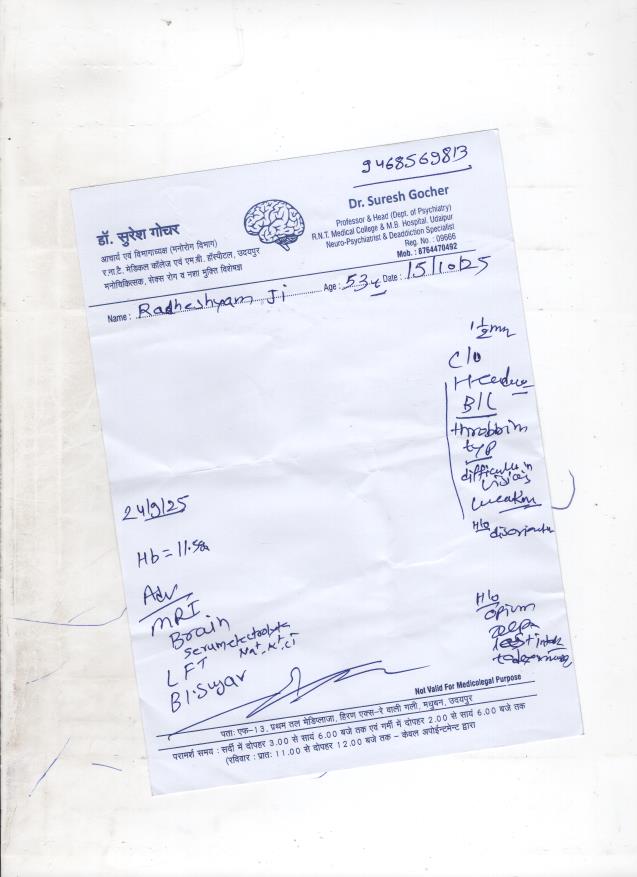 9468569813
डॉ. सुरेश गोचर
आचार्य एवं विभागाध्यक्ष (मनोरोग विभाग)
र.ना.टै. मेडिकल कॉलेज एवं एम.बी. हॉस्पीटल, उदयपुर
मनोचिकित्सक, सेक्स रोग व नशा मुक्ति विशेषज्ञ
Dr. Suresh Gocher
Professor & Head (Dept. of Psychiatry)
R.N.T. Medical College & M.B. Hospital, Udaipur
Neuro-Psychiatrist & Deaddiction Specialist
Reg. No. : 09666
Mob. : 8764470492
Name : Radheshyam Ji Age : 53y Date : 15/10/25
1 1/2 mn
C/o
B/L
throbbing
typ
difficulty in
H/o
24/9/25
Hb = 11.5
Adv
MRI
Brain
Serum electrolyte
Na+, K+, Cl-
LFT
Bl. Sugar
H/o
opium
Not Valid For Medicolegal Purpose
पता: एफ-13, प्रथम तल मेडिप्लाजा, हिरण एक्स-रे वाली गली, मधुबन, उदयपुर
परामर्श समय : सर्दी में दोपहर 3.00 से सायं 6.00 बजे तक एवं गर्मी में दोपहर 2.00 से सायं 6.00 बजे तक
(रविवार : प्रात: 11.00 से दोपहर 12.00 बजे तक – केवल अपोईन्टमेन्ट द्वारा